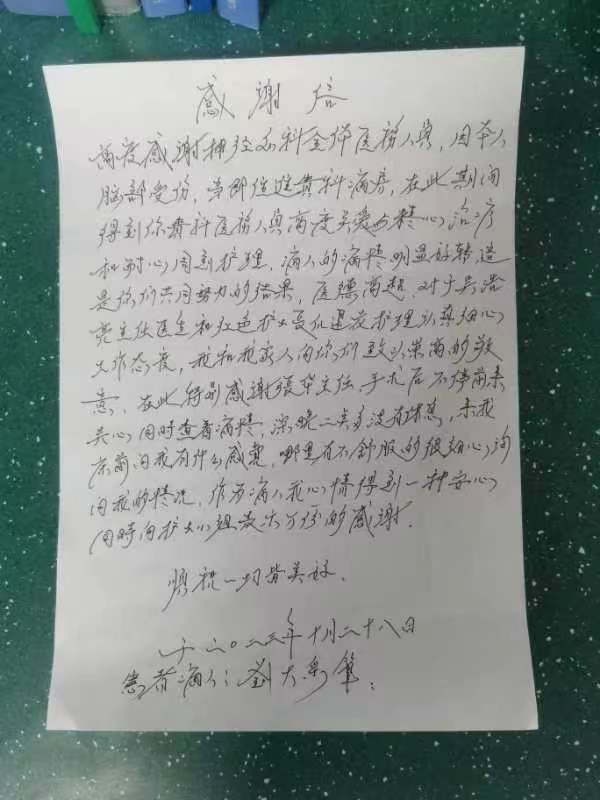 感谢信
高度感谢神经外科全体医务人员,因本人
脑部受伤,当即住进贵科病房,在此期间
得到你贵科医务人员高度关爱与精心治疗
和耐心周到护理,病人的病情明显好转,这
是你们共同努力的结果,医德高超,对于吴浩
主任医生和 护士 护理认真细心
工作态度,我和我家人向你们致以崇高的敬
意,在此特别感谢张华主任,手术后不停前来
关心,同时查看病情,深晚二点多没有休息,来我
床前问我有什么感觉,哪里有不舒服的很细心询
问我的情况,作为病人我心情得到一种安心,
同时向护士 组 万分的感谢.
愿祝一切皆美好.
于二〇二三年十月二十八日
患者病人:刘大